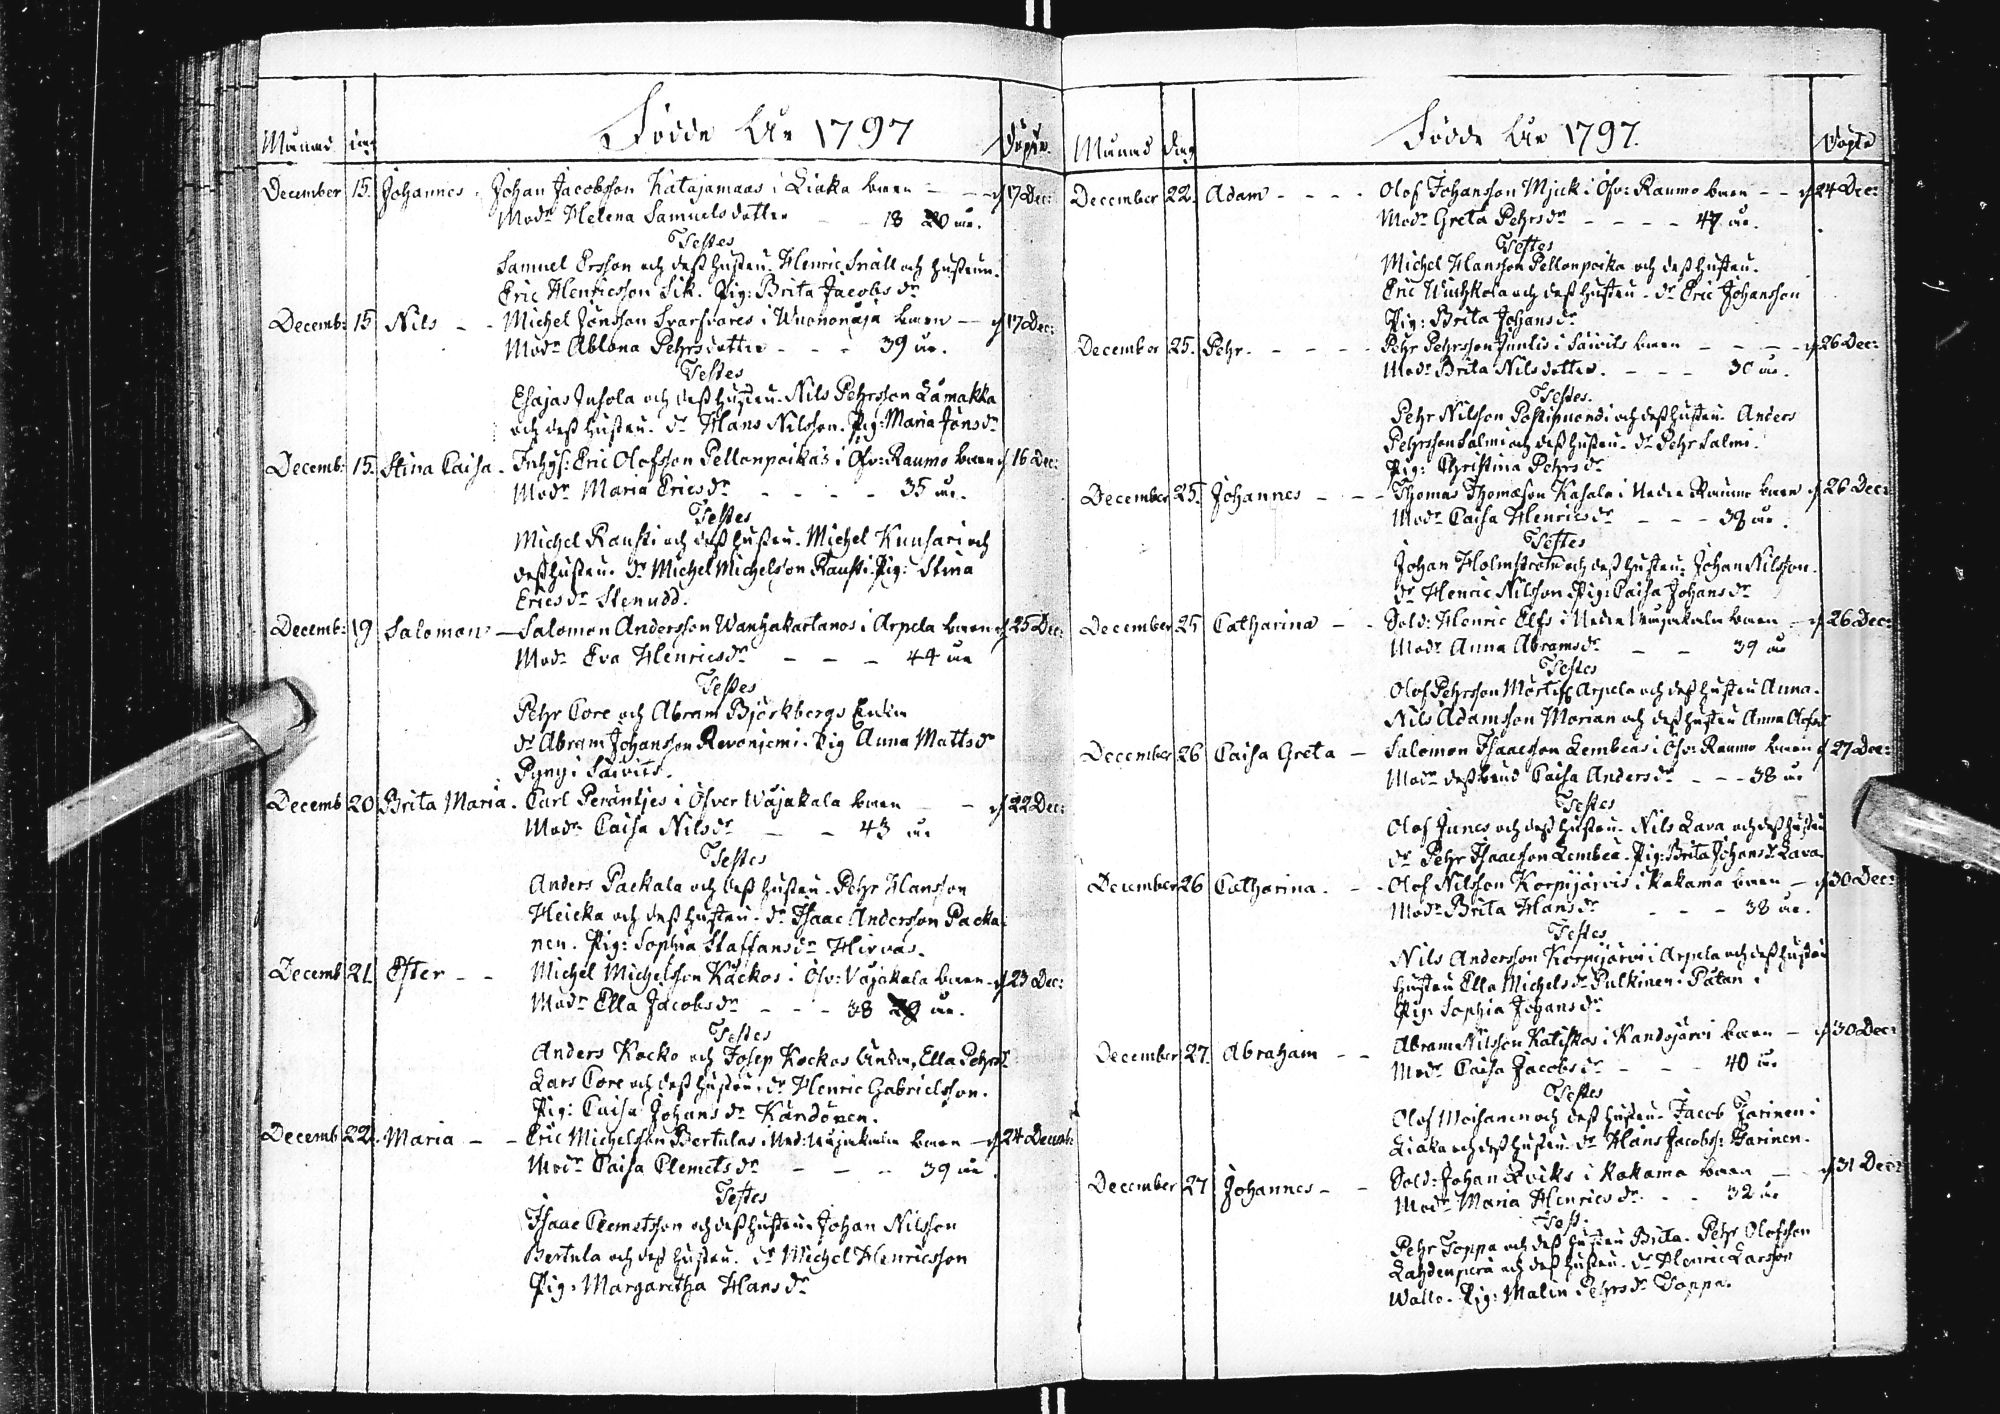 Födde År 1797
Månad dag Döpte
December 15. Johannes. Johan Jacobsson Katajamaas i Liaka barn — — d 17 Dec:
Modr Helena Samuelsdotter — 18 år.
Testes
Samuel Ersson och dess hustru. Henric Snäll och hustrun.
Eric Henricsson Sik. Pig: Brita Jacobs dr
Decemb: 15 Nils — Michel Jönsson i barn — d 17 Dec:
Modr Ablona Pehrsdotter — — 39 år.
Testes
Esajas Juhola och dess hustru. Nils Pehrsson Lamakka
och dess hustru. dr Hans Nilsson. Pig: Maria Jöns dr
Decemb: 15. Stina Caisa. Inhys: Eric Olofsson Pellonpoikas i Öfv: Raumo barn d 16 Dec:
Modr Maria Erics dr — — — 35 år.
Testes
Michel Rausti och dess hustru. Michel Kunsari och
dess hustru. dr Michel Michelsson Rausti. Pig: Stina
Erics dr Stenudd.
Decemb: 19 Salomon — Salomon Andersson Wanhakartanos i Arpela barn d 25 Dec:
Modr Eva Henrics dr — — — 44 år
Testes
Pehr Core och Abram Björkbergs Enka
dr Abram Johansson Revonjemi. Pig Anna Matts dr
Pyny i Laivits.
Decemb 20 Brita Maria. Carl Peräntjes i Öfver Wäjakala barn — — d 22 Dec:
Modr Caisa Nils dr — — 43 år
Testes
Anders Packala och dess hustru. Pehr Hansson
Heicka och dess hustru. dr Isaac Andersson Packa-
nen. Pig: Sophia Staffans dr Hirvas.
Decemb 21. Ester — — Michel Michelsson Käckos i Öfv: Väjakala barn d 23 Dec:
Modr Ella Jacobs dr — — — 38 år.
Testes
Anders Kocko och Josep Kockos Enka, Ella Pehrs dr
Lars Core och dess hustru. dr Henric Gabrielsson.
Pig: Caisa Johans dr Kändönen.
Decemb 22. Maria — — Eric Michelsson Bertulas i Ned: Wäjakala barn — d 24 Decemb:
Modr Caisa Clemets dr — — — 39 år
Testes
Isaac Clemetsson och dess hustru. Johan Nilsson
Bertula och dess hustru. dr Michel Henricsson
Pig: Margaretha Hans dr
Födde År 1797.
Månad Dag Döpte
December 22. Adam — — — Olof Johansson Mjuk i Öfv: Raumo barn — — d 24 Dec:
Modr Greta Pehrs dr — — — — 47 år.
Testes
Michel Hansson Pellonpoika och dess hustru.
Eric Wuchkola och dess hustru. dr Eric Johansson
Pig: Brita Johans dr
December 25. Pehr. — — — Pehr Pehrsson Juntis i Laivits barn — — — d 26 Dec:
Modr Brita Nilsdotter. — — — 30 år.
Testes.
Pehr Nilsson och dess hustru. Anders
Pehrsson Salmi och dess hustru. dr Pehr Salmi.
Pig: Christina Pehrs dr
December 25. Johannes — — Thomas Thomæson Kasala i Nedra Raumo barn d 26 Dec:
Modr Caisa Henrics dr — — — 38 år.
Testes
Johan Holmström och dess hustru. Johan Nilsson.
dr Henric Nilsson. Pig: Caisa Johans dr
December 25 Catharina — — Sold: Henric Elfs i Nedra Wäjakala barn — d 26 Dec:
Modr Anna Abrams dr — — 39 år
Testes
Olof Pehrsson Arpela och dess hustru Anna.
Nils Adamsson Morian och dess hustru Anna Olofs dr
December 26 Caisa Greta — Salomon Isaacsson Lembeas i Öfv: Raumo barn d 27 Dec:
Modr dess hustru Caisa Anders dr — — 38 år
Testes
Olof Junes och dess hustru. Nils Lava och dess hustru
dr Pehr Isaacsson Lembea. Pig: Brita Johans dr Lava
December 26 Catharina. — — Olof Nilsson Korpijärvis i Kakama barn — d 30 Dec:
Modr Brita Hans dr — — — 38 år.
Testes
Nils Andersson Korpijärvi i Arpela och dess hustru
hustru Ella Michels dr Pulkinen.
Pig: Sophia Johans dr
December 27. Abraham — — Abram Nilsson Katiskas i Kandojärvi barn — d 30 Dec:
Modr Caisa Jacobs dr — — — 40 år
Testes
Olof Moisanen och dess hustru. Jacob Jarinen i
Liaka och dess hustru. dr Hans Jacobss: Jarinen.
December 27 Johannes — — Sold: Johan Qviks i Kakama barn — — d 31 Dec:
Modr Maria Henrics dr — — 32 år
Test.
Pehr Toppa och dess hustru Brita. Pehr Olofsson
Lahdenperä och dess hustru. dr Henric Larsson
Walto. Pig: Malin Pehrs dr Toppa.